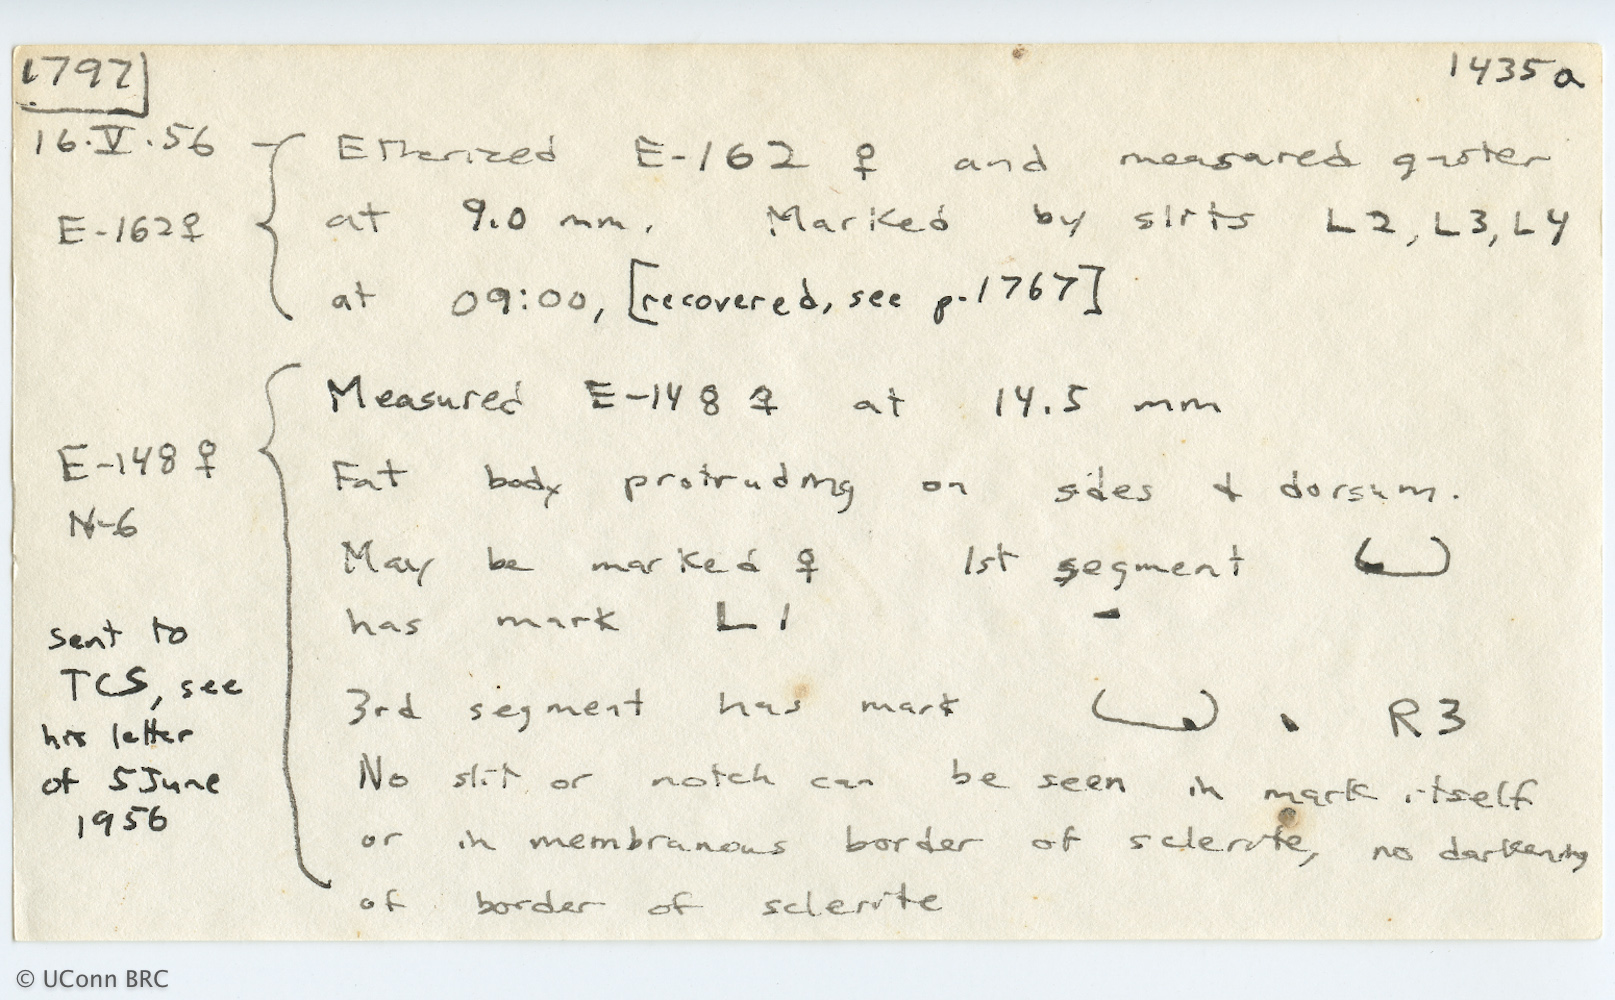 1797 1435a
16.V.56 Etherized E-162 ♀ and measured gaster
E-162♀ at 9.0 mm. Marked by slits L2, L3, L4
at 09:00, [recovered, see p.1767]
Measured E-148 ♀ at 14.5 mm
E-148 ♀ Fat body protruding on sides & dorsum.
N-6
May be marked ♀ 1st segment
has mark L1
sent to
TCS, see 3rd segment has mark R3
his letter
of 5 June No slit or notch can be seen in mark itself
1956 or in membranous border of sclerite, no darkening
of border of sclerite
© UConn BRC